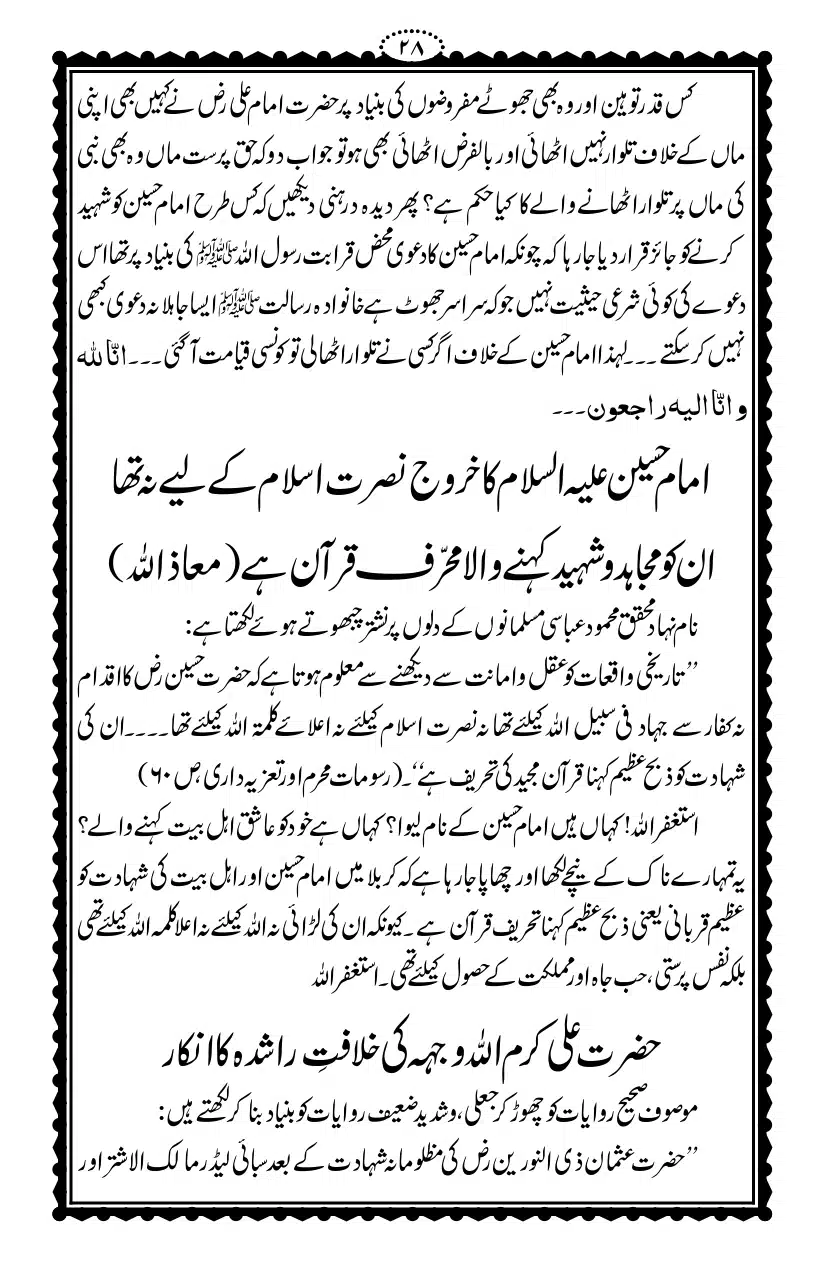 ۲۸
کس قدر توہین اور وہ بھی جھوٹے مفروضوں کی بنیاد پر حضرت امام علی رض نے کہیں بھی اپنی
ماں کے خلاف تلوار نہیں اٹھائی اور بالفرض اٹھائی بھی ہو تو جواب دو کہ حق پرست ماں وہ بھی نبی
کی ماں پر تلوار اٹھانے والے کا کیا حکم ہے؟ پھر دیدہ درہنی دیکھیں کہ کس طرح امام حسین کو شہید
کرنے کو جائز قرار دیا جا رہا کہ چونکہ امام حسین کا دعوی محض قرابت رسول اللہ ﷺ کی بنیاد پر تھا اس
دعوے کی کوئی شرعی حیثیت نہیں جو کہ سراسر جھوٹ ہے خانوادہ رسالت ﷺ ایسا جاہلانہ دعوی کبھی
نہیں کر سکتے ۔۔۔ لہذا امام حسین کے خلاف اگر کسی نے تلوار اٹھالی تو کونسی قیامت آگئی ۔۔۔ انّا للہ
و انّا الیہ راجعون ۔۔۔
امام حسین علیہ السلام کا خروج نصرت اسلام کے لیے نہ تھا
ان کو مجاہد و شہید کہنے والا محرّف قرآن ہے (معاذ اللہ)
نام نہاد محقق محمود عباسی مسلمانوں کے دلوں پر نشتر چبھوتے ہوئے لکھتا ہے:
’’تاریخی واقعات کو عقل و امانت سے دیکھنے سے معلوم ہوتا ہے کہ حضرت حسین رض کا اقدام
نہ کفار سے جہاد فی سبیل اللہ کیلئے تھا نہ نصرت اسلام کیلئے نہ اعلائے کلمۃ اللہ کیلئے تھا۔۔۔۔ ان کی
شہادت کو ذبح عظیم کہنا قرآن مجید کی تحریف ہے‘‘۔ (رسومات محرم اور تعزیہ داری ص ۶۰)
استغفر اللہ! کہاں ہیں امام حسین کے نام لیوا؟ کہاں ہے خود کو عاشق اہل بیت کہنے والے؟
یہ تمہارے ناک کے نیچے لکھا اور چھاپا جا رہا ہے کہ کربلا میں امام حسین اور اہل بیت کی شہادت کو
عظیم قربانی یعنی ذبح عظیم کہنا تحریف قرآن ہے۔ کیونکہ ان کی لڑائی نہ اللہ کیلئے نہ اعلا کلمہ اللہ کیلئے تھی
بلکہ نفس پرستی، حب جاہ اور مملکت کے حصول کیلئے تھی۔ استغفر اللہ
حضرت علی کرم اللہ وجہہ کی خلافتِ راشدہ کا انکار
موصوف صحیح روایات کو چھوڑ کر جعلی، و شدید ضعیف روایات کو بنیاد بنا کر لکھتے ہیں:
’’حضرت عثمان ذی النورین رض کی مظلومانہ شہادت کے بعد سبائی لیڈر مالک الاشتر اور